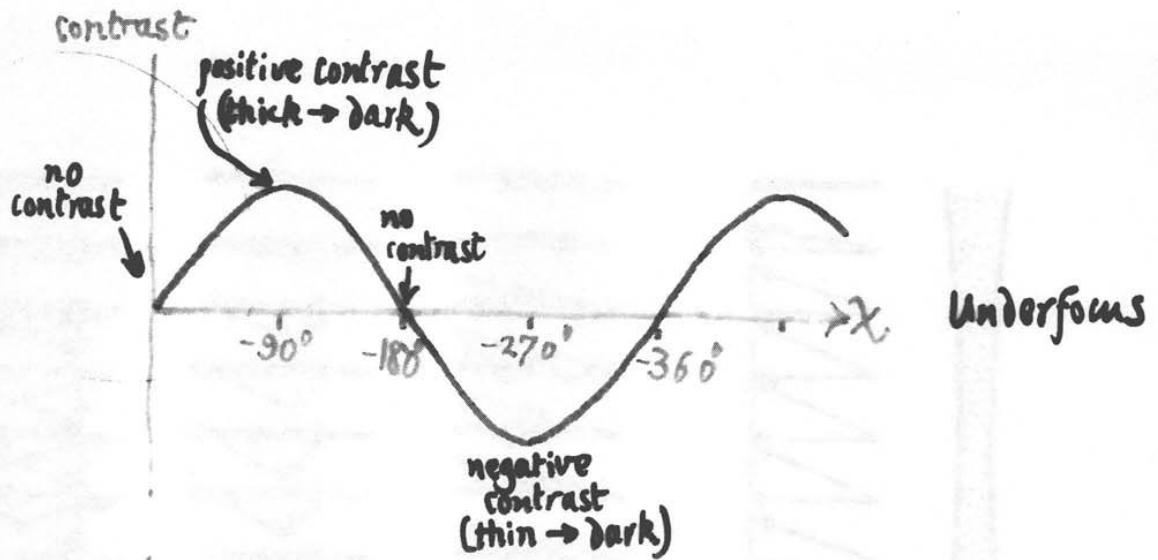 contrast
positive contrast
(thick → dark)
no
contrast
no
contrast
-90°
-180°
-270°
-360°
χ
Underfocus
negative
contrast
(thin → dark)